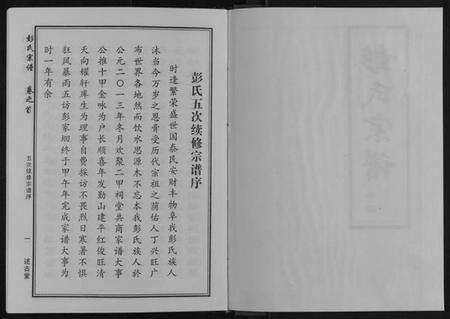 彭氏五次续修宗谱序
时逢繁荣盛世国泰民安财丰物阜我彭氏族人
沐当今万岁之恩膏受历代宗祖之荫佑人丁兴旺广
布世界各地然而饮水思源木不忘本我彭氏族人於
公元二〇一三年冬月欢聚二甲祠堂共商家谱大事
公推十甲金咏为户长顺喜年发勤山建平红俊旺清
天向耀轩库生为理事自费採访不畏烈日寒暑不惧
狂风暴雨五访彭家畈终于甲午年完成家谱大事为
时一年有余
彭氏宗谱
卷之首
五次续修宗谱序
一
述古堂